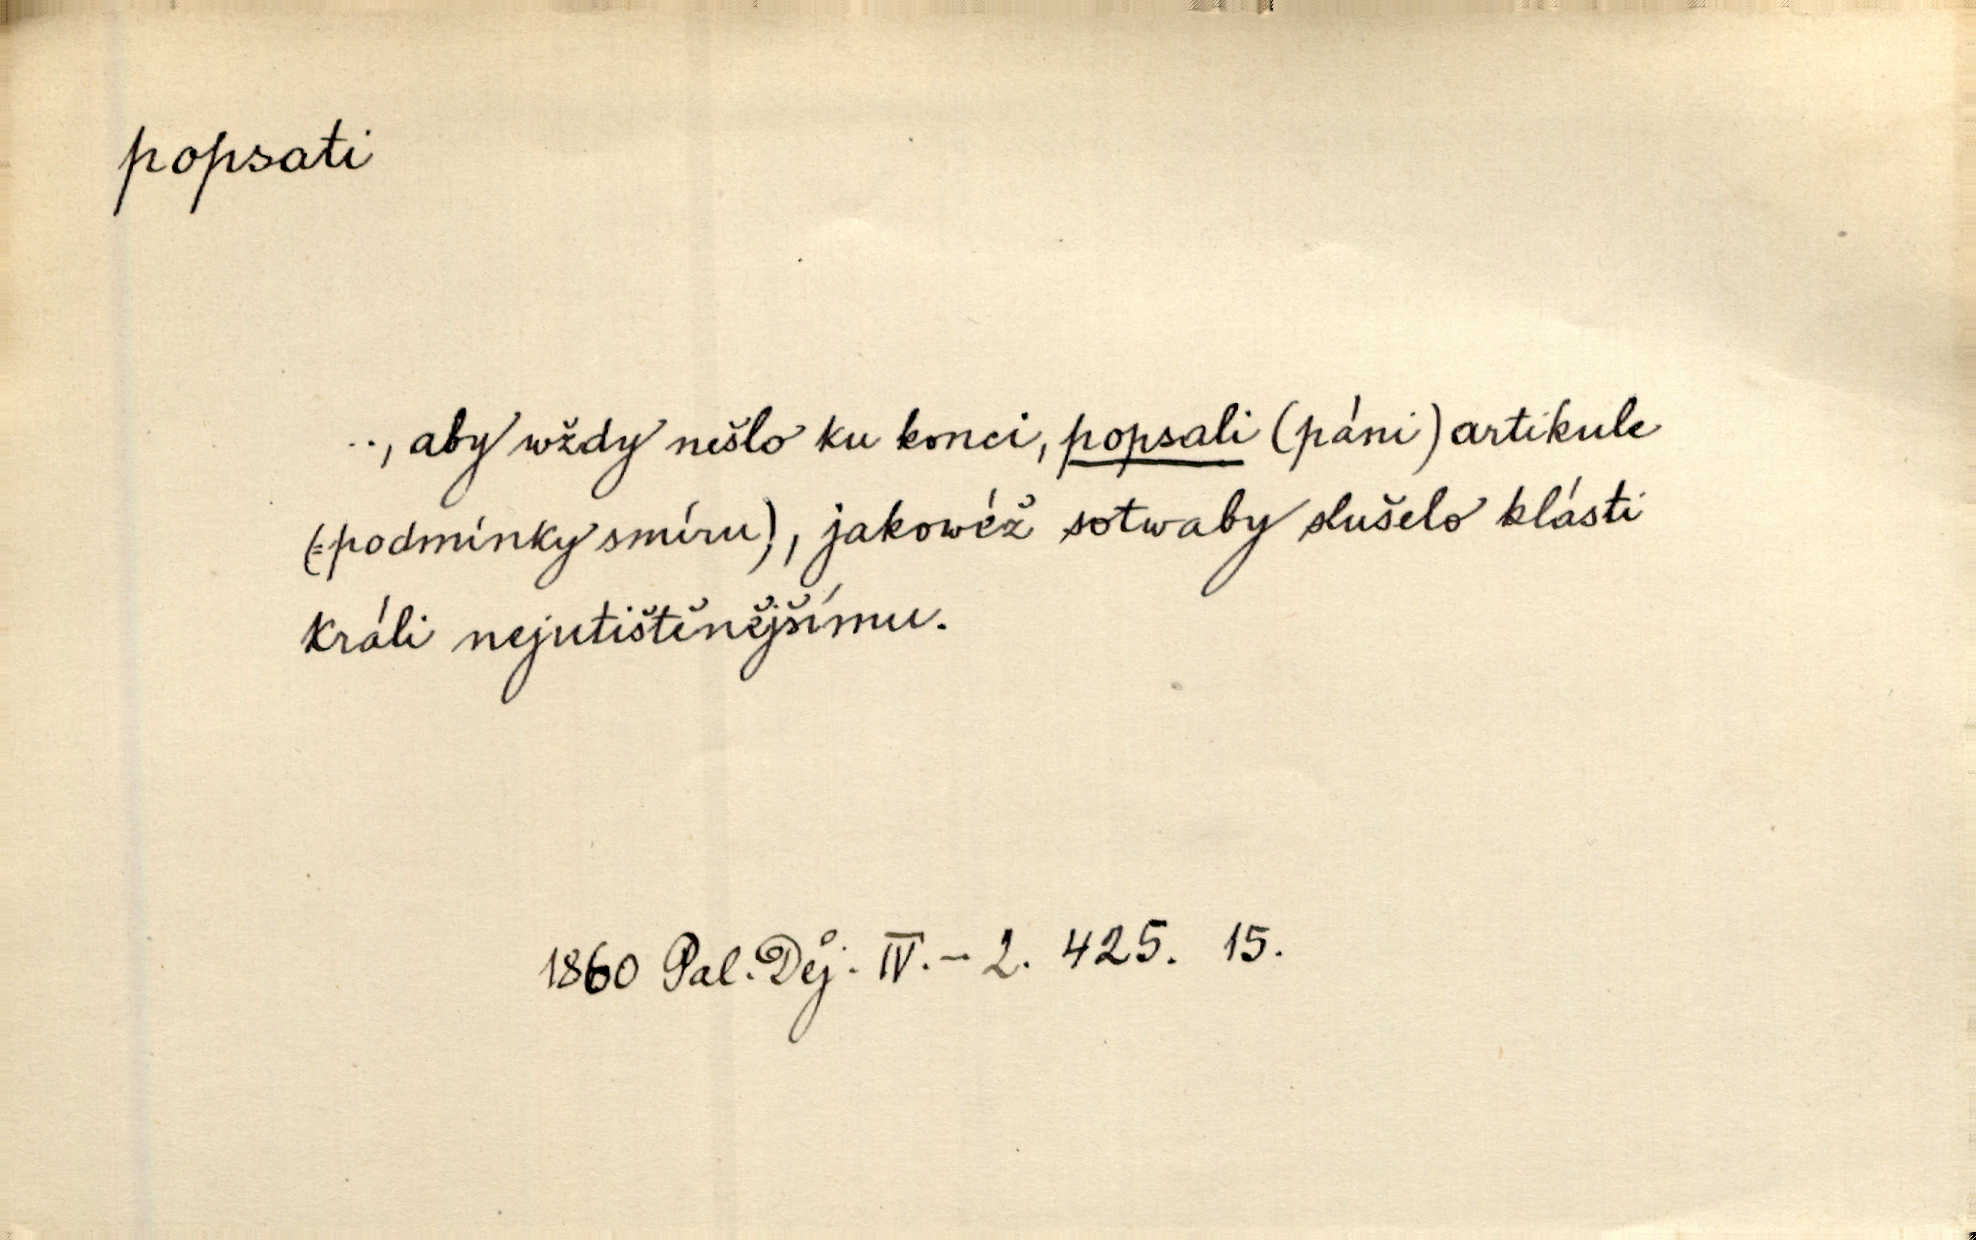 popsati
.., aby wždy nešlo ku konci, popsali (páni) artikule
(=podmínky smíru), jakowéž sotwaby slušelo klásti
králi nejutištěnějšímu.
1860 Pal. Děj. IV. - 2. 425. 15.